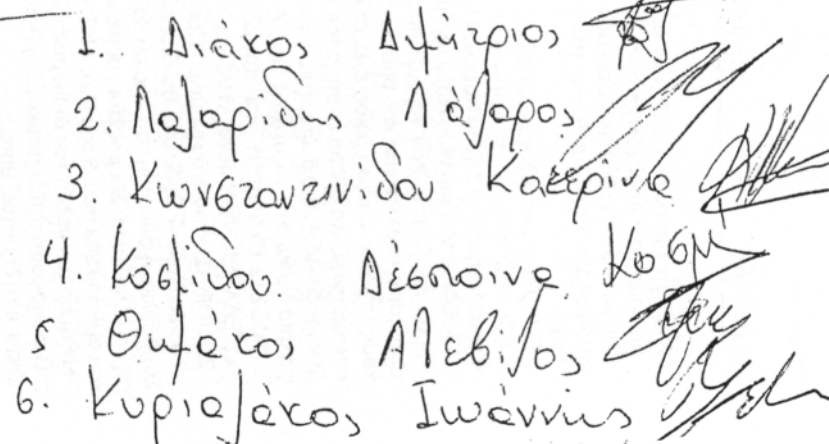 1. Διάκος Δημήτριος
2. Λαζαρίδης Λάζαρος
3. Κωνσταντινίδου Κατερίνα
4. Κοσμίδου Δέσποινα Κοσμ
5 Θωμάκος
6. Κυριαζάκος Ιωάννης